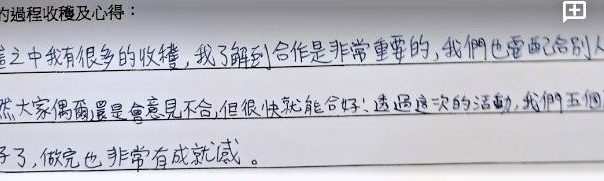 的過程收穫及心得：
這之中我有很多的收穫，我了解到合作是非常重要的，我們也要配合別人
然大家偶爾還是會意見不合，但很快就能合好！透過這次的活動，我們五個
子了，做完也非常有成就感。